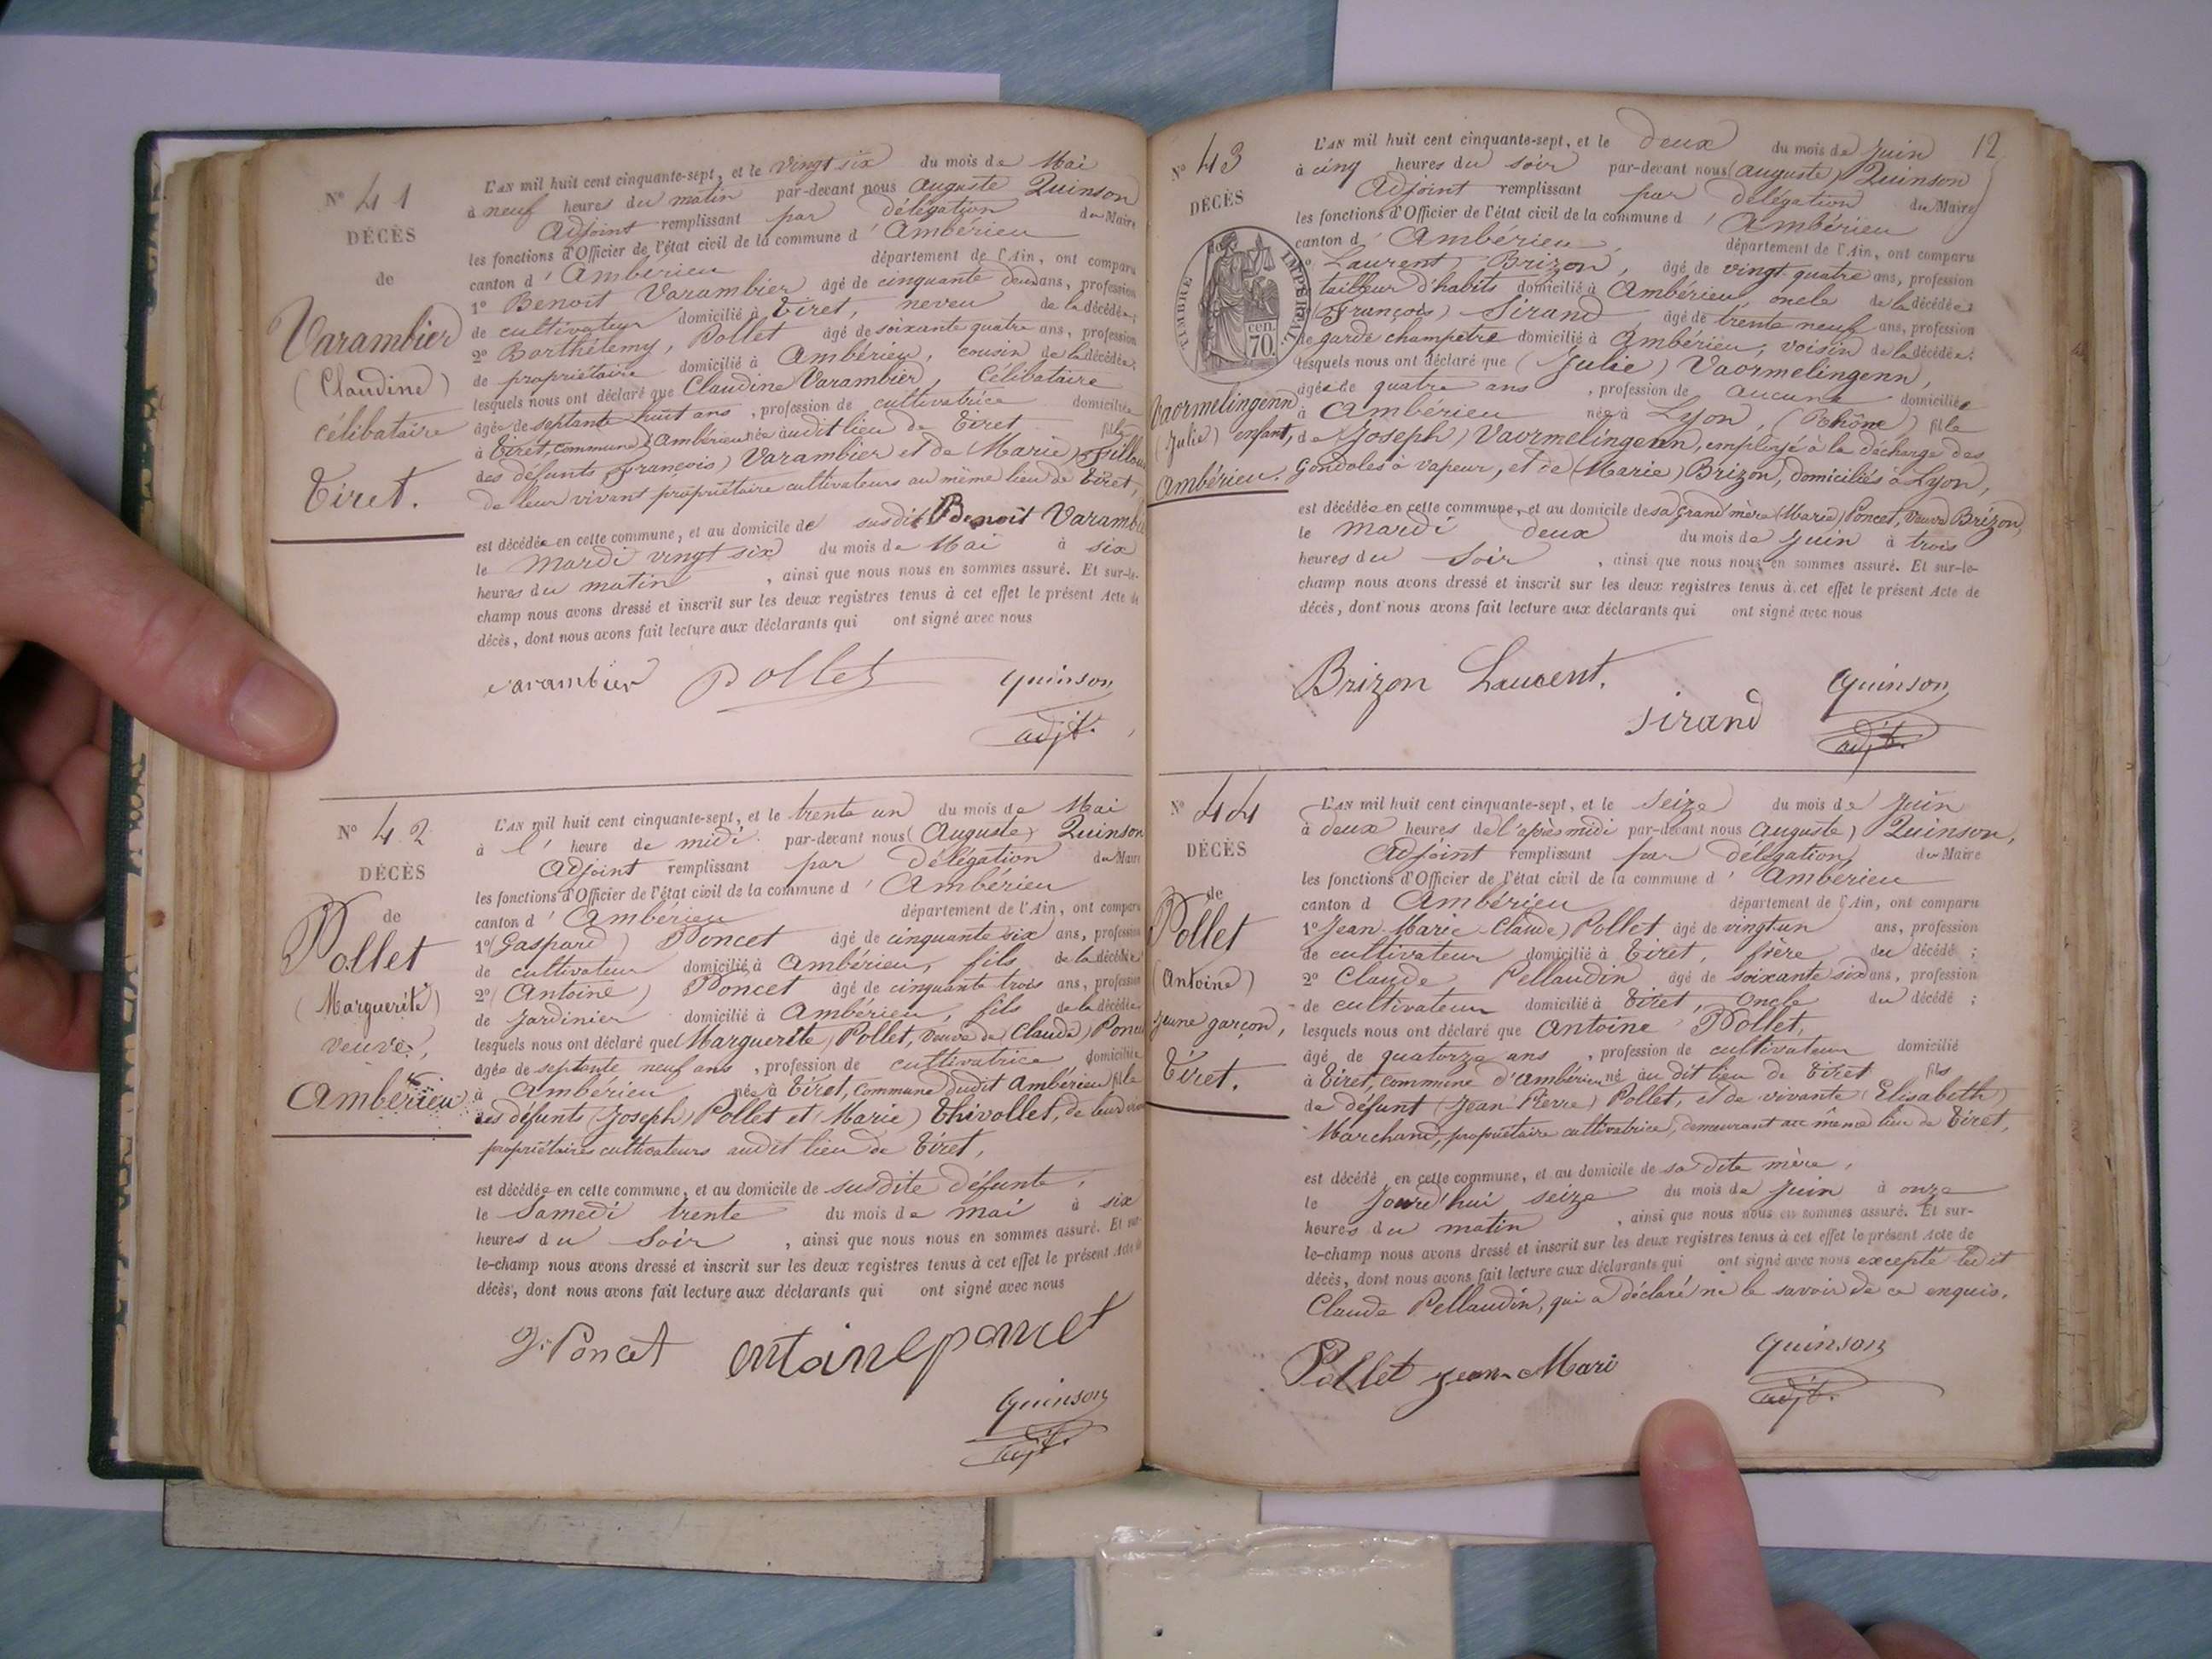 N° 41
DÉCÈS
de
Varambier
(Claudine)
célibataire
Tiret.
L'AN mil huit cent cinquante-sept, et le vingt six du mois de Mai
à neuf heures du matin par-devant nous Auguste Quinson
Adjoint remplissant par délégation du Maire
les fonctions d'Officier de l'état civil de la commune d'Ambérieu
canton d'Ambérieu département de l'Ain, ont comparu
1° Benoit Varambier âgé de cinquante deux ans, profession
de cultivateur domicilié à Tiret, neveu de la décédée;
2° Barthélemy, Pollet âgé de soixante quatre ans, profession
de propriétaire domicilié à Ambérieu, cousin de la décédée;
lesquels nous ont déclaré que Claudine Varambier, célibataire
âgée de septante huit ans, profession de cultivatrice domiciliée
à Tiret, commune d'Ambérieu née audit lieu de Tiret fille
des défunts (François) Varambier et de Marie)
de leur vivant propriétaire cultivateurs au même lieu de Tiret,
est décédée en cette commune, et au domicile de susdit Benoit Varambier
le Mardi vingt six du mois de Mai à six
heures du matin, ainsi que nous nous en sommes assuré. Et sur-le-
champ nous avons dressé et inscrit sur les deux registres tenus à cet effet le présent Acte de
décès, dont nous avons fait lecture aux déclarants qui ont signé avec nous
varambier Pollet quinson
adjt.
N° 42
DÉCÈS
de
Pollet
(Marguerite)
veuve,
Ambérieu
L'AN mil huit cent cinquante-sept, et le trente un du mois de Mai
à l'heure de midi par-devant nous (Auguste) Quinson
Adjoint remplissant par délégation du Maire
les fonctions d'Officier de l'état civil de la commune d'Ambérieu
canton d'Ambérieu département de l'Ain, ont comparu
1° (Gaspard) Poncet âgé de cinquante six ans, profession
de cultivateur domicilié à Ambérieu, fils de la décédée
2° (Antoine) Poncet âgé de cinquante trois ans, profession
de Jardinier domicilié à Ambérieu, fils de la décédée
lesquels nous ont déclaré que (Marguerite) Pollet, veuve de (Claude) Poncet
âgée de septante neuf ans, profession de cultivatrice domiciliée
à Ambérieu née à Tiret, commune dudit Ambérieu fille
des défunts (Joseph) Pollet et (Marie) Thivollet, de leur vivant
propriétaires cultivateurs audit lieu de Tiret,
est décédée en cette commune, et au domicile de susdite défunte,
le Samedi trente du mois de mai à six
heures du Soir, ainsi que nous nous en sommes assuré. Et sur-
le-champ nous avons dressé et inscrit sur les deux registres tenus à cet effet le présent Acte de
décès, dont nous avons fait lecture aux déclarants qui ont signé avec nous
G. Poncet antoineponcet
quinson
adjt.
12
N° 43
DÉCÈS
TIMBRE IMPÉRIAL
70 cen.
Vaormelingenn
(Julie) enfant,
Ambérieu.
L'AN mil huit cent cinquante-sept, et le deux du mois de Juin
à cinq heures du soir par-devant nous (Auguste) Quinson
Adjoint remplissant par délégation du Maire
les fonctions d'Officier de l'état civil de la commune d'Ambérieu
canton d'Ambérieu, département de l'Ain, ont comparu
1° Laurent Brizon, âgé de vingt quatre ans, profession
tailleur d'habits domicilié à Ambérieu, oncle de la décédée;
(François) Sirand, âgé de trente neuf ans, profession
de garde champêtre domicilié à Ambérieu, voisin de la décédée;
lesquels nous ont déclaré que (Julie) Vaormelingenn,
âgée de quatre ans, profession de aucune domiciliée
à Ambérieu née à Lyon, (Rhône) fille
de (Joseph) Vaormelingenn, employé à la décharge des
Gondoles à vapeur, et de (Marie) Brizon, domiciliés à Lyon,
est décédée en cette commune, et au domicile de sa grand'mère (Marie) Poncet, veuve Brizon,
le mardi deux du mois de Juin à trois
heures du Soir, ainsi que nous nous en sommes assuré. Et sur-le-
champ nous avons dressé et inscrit sur les deux registres tenus à cet effet le présent Acte de
décès, dont nous avons fait lecture aux déclarants qui ont signé avec nous
Brizon Laurent.
sirand
quinson
adjt.
N° 44
DÉCÈS
de
Pollet
(Antoine)
jeune garçon,
Tiret.
L'AN mil huit cent cinquante-sept, et le Seize du mois de Juin
à deux heures de l'après midi par-devant nous Auguste) Quinson,
Adjoint remplissant par délégation du Maire
les fonctions d'Officier de l'état civil de la commune d'Ambérieu
canton d'Ambérieu département de l'Ain, ont comparu
1° Jean-Marie-Claude) Pollet âgé de vingt un ans, profession
de cultivateur domicilié à Tiret, frère du décédé;
2° Claude Pellaudin âgé de soixante six ans, profession
de cultivateur domicilié à Tiret, Oncle du décédé;
lesquels nous ont déclaré que Antoine Pollet,
âgé de quatorze ans, profession de cultivateur domicilié
à Tiret, commune d'Ambérieu né au dit lieu de Tiret fils
de défunt (Jean-Pierre) Pollet, et de vivante (Elisabeth)
Marchand, propriétaire cultivatrice, demeurant au même lieu de Tiret,
est décédé en cette commune, et au domicile de sa dite mère,
le Jourd'hui seize du mois de Juin à onze
heures du matin, ainsi que nous nous en sommes assuré. Et sur-
le-champ nous avons dressé et inscrit sur les deux registres tenus à cet effet le présent Acte de
décès, dont nous avons fait lecture aux déclarants qui ont signé avec nous excepté ledit
Claude Pellaudin, qui a déclaré ne le savoir de ce enquis.
Pollet jean-Mari
quinson
adjt.